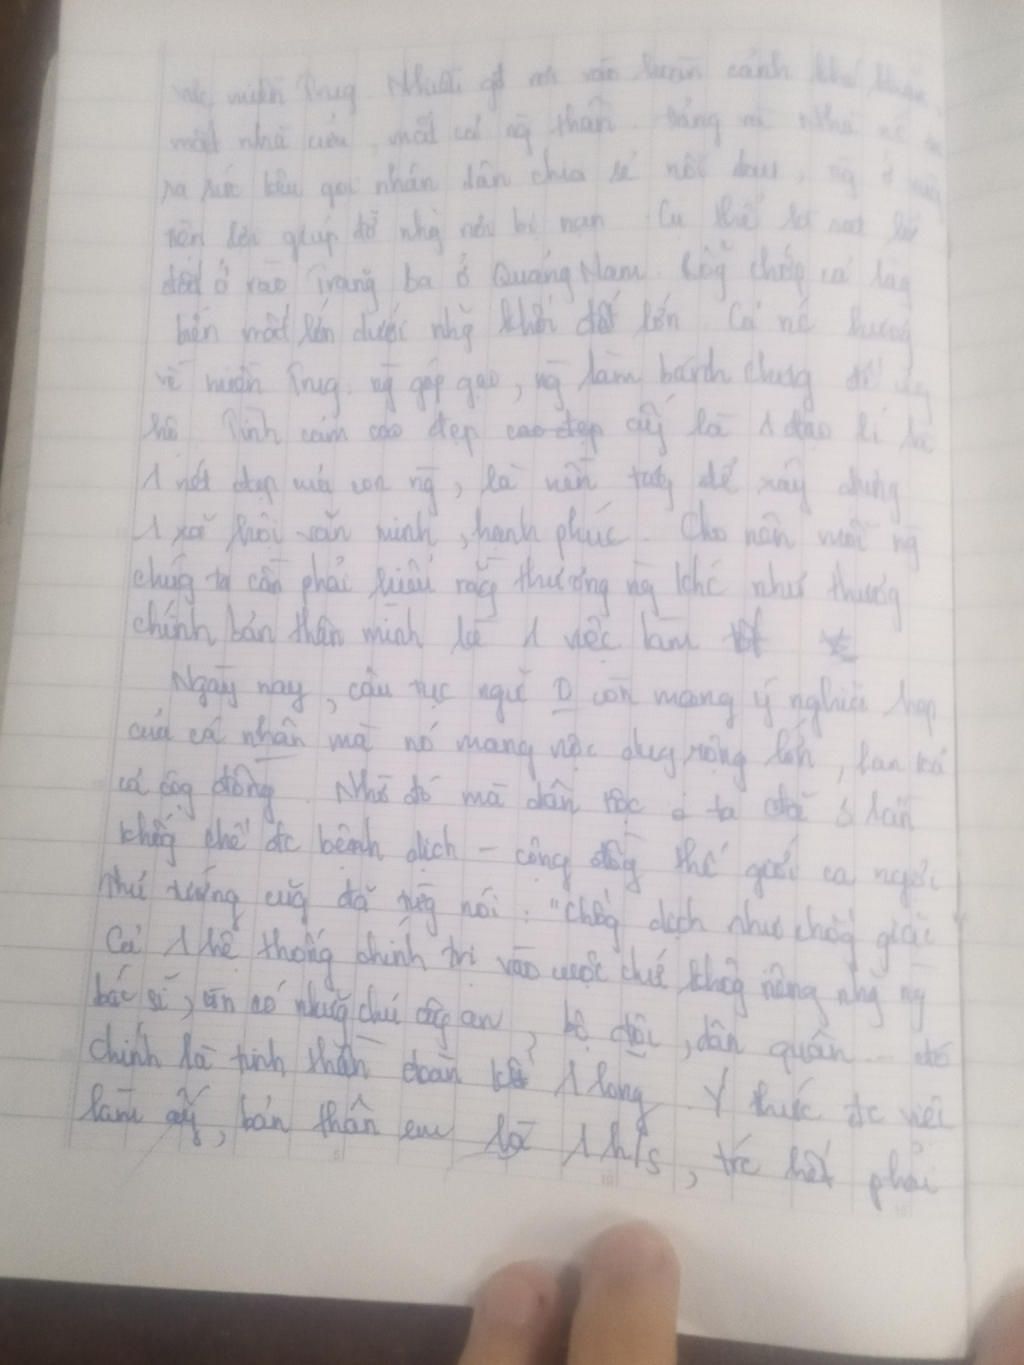 miền Trug Nhiều gđ rơi vào hoàn cảnh khó khăn,
mất nhà cửa, mất cả ng thân. Đảng và Nhà nc
ra sức kêu gọi nhân dân chia sẻ nỗi đau, ng ở
giúp đỡ nhg nơi bị nạn. Cụ thể là
đất ở rào Trang ba ở Quảng Nam. chốc cả làg
biến mất dưới nhg khối đất lớn. Cả nc hướng
về miền Trug. ng góp gạo, ng làm bánh chưng để ủng
hộ. Tình cảm cao đẹp cao đẹp ấy là 1 đạo lí là
1 nét đẹp của con ng, là nền tảg để xây dựng
1 xã hội văn minh, hạnh phúc. Cho nên mỗi ng
chúg ta cần phải hiểu rằg thương ng khc như thương
chính bản thân mình là 1 việc làm tốt
Ngày nay, câu tục ngữ D còn mang ý nghĩa hẹp
của cá nhân mà nó mang nội dug rộng lớn, lan toả
cả cộg đồng. Nhờ đó mà dân tộc ta đã 3 lần
khốg chế đc bệnh dịch - cộng đồg thế giới ca ngợi
thủ tướng cũg đã từg nói: "Chốg dịch như chốg giặc"
Cả 1 hệ thống chính trị vào cuộc chứ khôg riêng nhg ng
bác sĩ, còn có nhữg chú côg an, bộ đội, dân quân - đó
chính là tinh thần đoàn kết 1 lòng. Ý thức đc việc
làm ấy, bản thân em là 1 h/s, trc hết phải